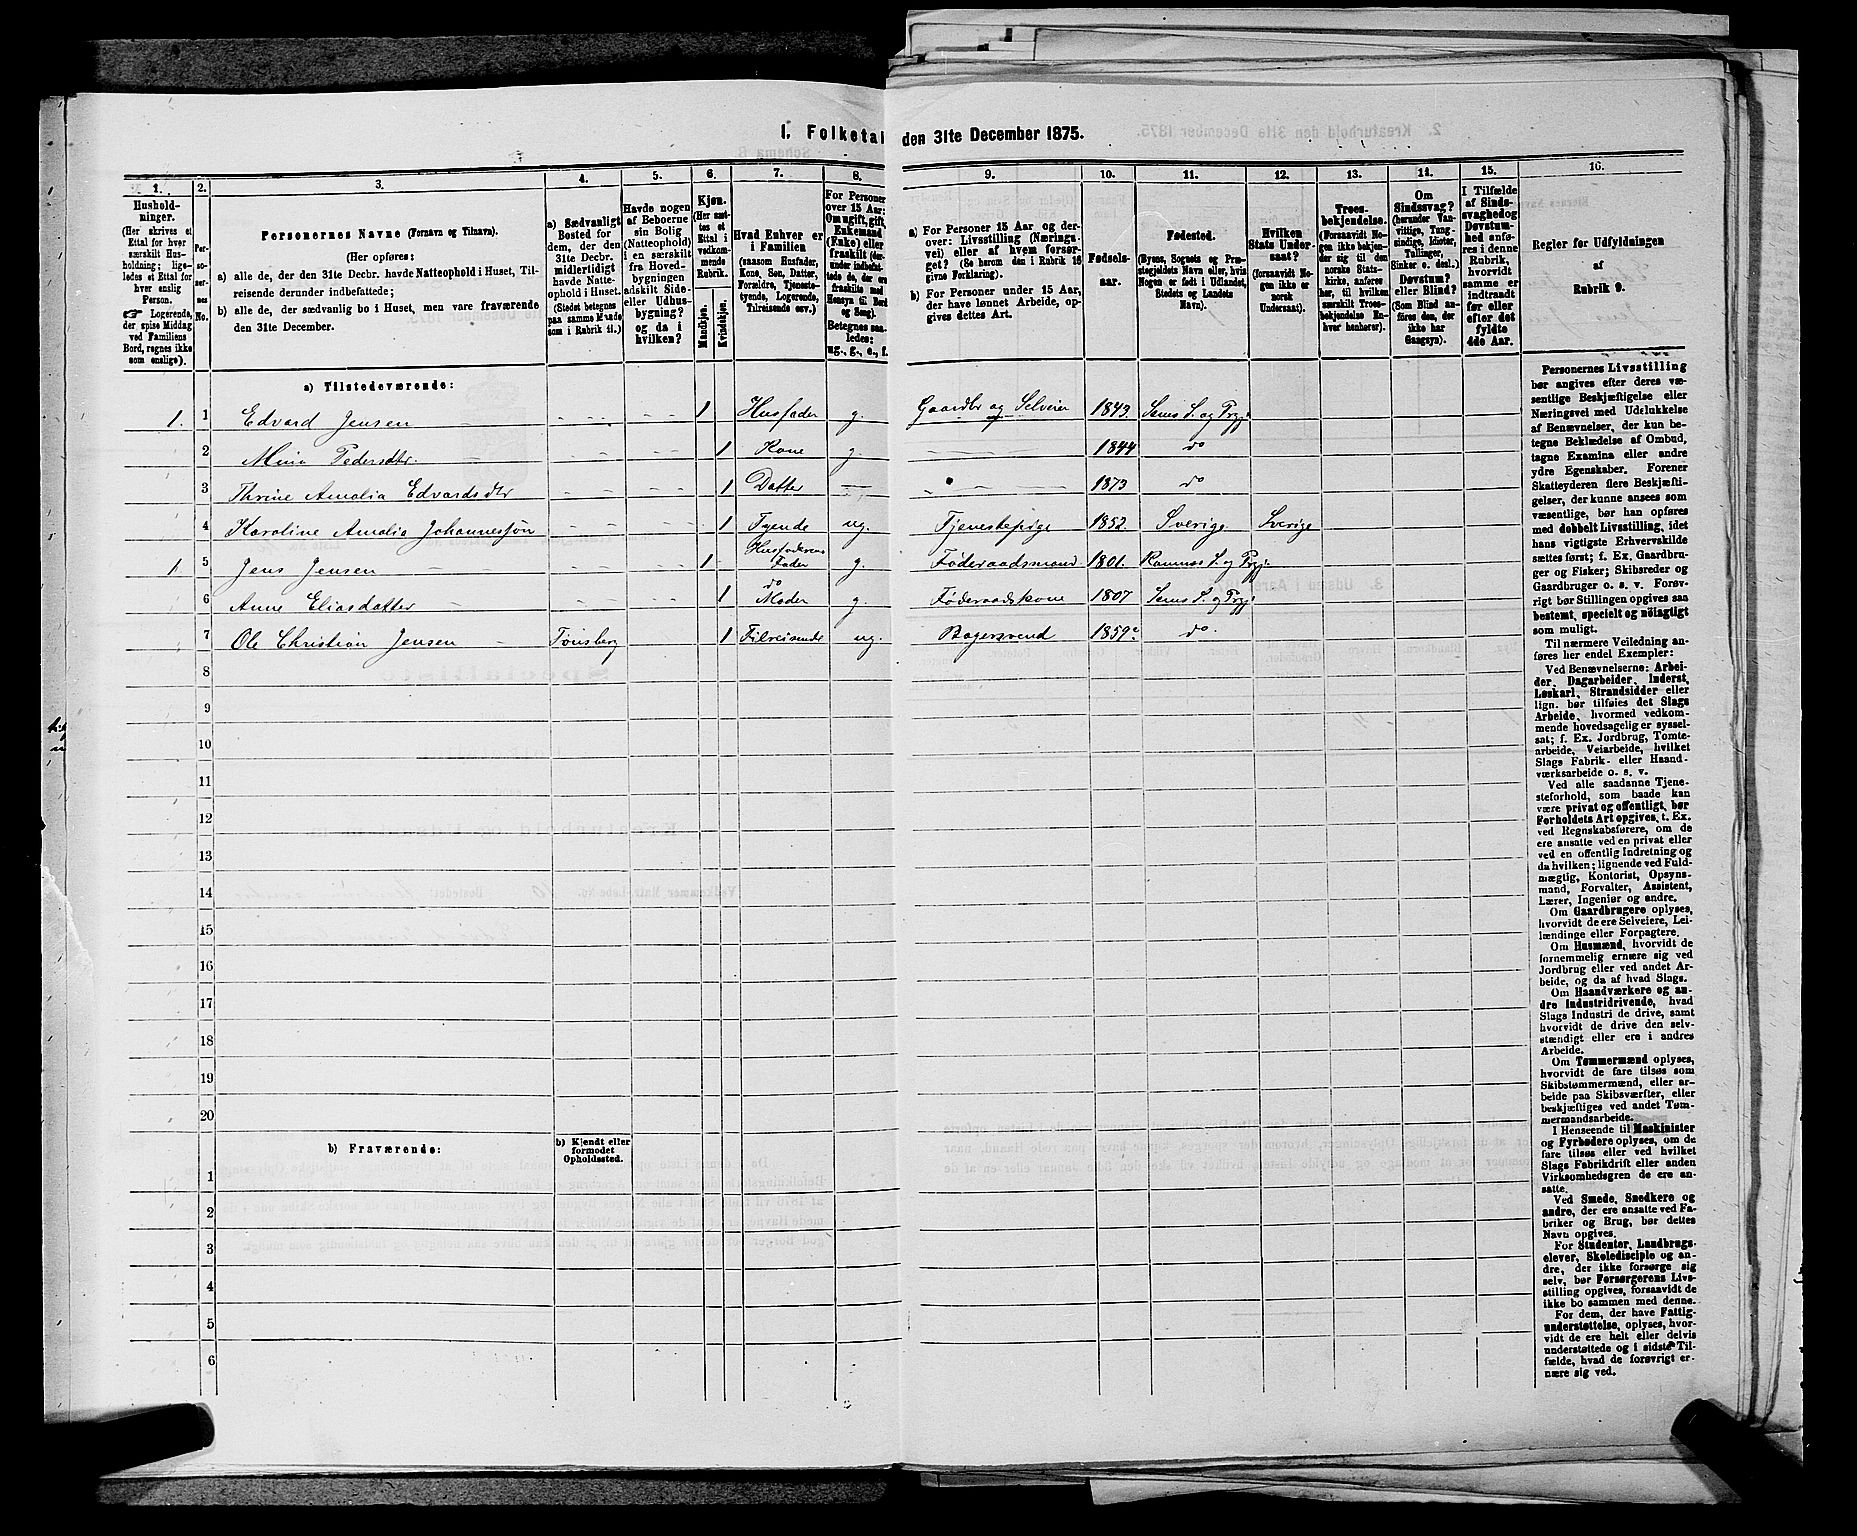 I. Folketal den 31te December 1875.
1. 2. 3. 4. 5. 6. 7. 8. 9. 10. 11. 12. 13. 14. 15. 16.
Husholdninger.
(Her skrives et
Ettal for hver
særskilt Husholdning;
ligeledes
et Ettal for
hver enslig
Person.
☞ Logerende,
der spise Middag
ved Familiens
Bord, regnes ikke
som enslige).
Personernes
No.
Personernes Navne (Fornavn og Tilnavn).
(Her opføres:
a) alle de, der den 31te Decbr. havde Natteophold i Huset, Tilreisende
derunder indbefattede;
b) alle de, der sædvanlig bo i Huset, men vare fraværende
den 31te December.
a) Sædvanligt
Bosted for
dem, der den
31te Decbr.
midlertidigt
havde Natteophold
i Huset.
(Stedet betegnes
paa samme Maade
som i Rubrik 11.)
Havde nogen
af Beboerne
sin Bolig
(Natteophold)
i en særskilt
fra Hovedbygningen
adskilt Side-
eller Udhusbygning?
og da i
hvilken?
Kjøn.
(Her sættes
et
Ettal i
vedkommende
Rubrik.
Mandkjøn.
Kvindekjøn.
Hvad Enhver er
i Familien
(saasom Husfader,
Kone, Søn, Datter,
Forældre, Tjenestetyende,
Logerende,
Tilreisende osv.)
For Personer
over 15 Aar:
Om ugift, gift,
Enkemand
(Enke) eller
fraskilt
Betegnes saaledes:
ug., g., e., f.
a) For Personer 15 Aar og derover:
Livsstilling (Næringsvei)
eller af hvem forsørget?
(Se herom den i Rubrik 16
givne Forklaring).
b) For Personer under 15 Aar,
der have lønnet Arbeide, opgives
dettes Art.
Fødsels-
aar.
Fødested.
(Byens, Sognets og Præstegjeldets
Navn eller, hvis
Nogen er født i Udlandet,
Stedets og Landets
Navn).
Hvilken
Stats Undersaat?
(forsaavidt Nogen
ikke er
norsk
Undersaat).
Troesbekjendelse.
(Forsaavidt Nogen
ikke bekjender
sig til den
norske Statskirke,
anføres
her, til hvilken
særskilt Troesbekjendelse
Enhver
henhører).
Om
Sindssvag?
(herunder Vanvittige,
Tungsindige,
Idioter,
Tullinger,
Sinker o. desl.)
Døvstum?
eller Blind?
(Som Blind anføres
den, der
ikke har
Gangsyn).
I Tilfælde
af Sindssvaghed
og
Døvstumhed
anføres
i denne
Rubrik,
hvorvidt
samme er
indtraadt
før eller
efter det
fyldte
4de Aar.
Regler for Udfyldningen
af
Rubrik 9.
a) Tilstedeværende:
1. 1 Edvard Jensen 1 Husfader g. Gaardbr og Selveier 1843. Sems S. og Prgj.
2 Mina Pedersdtr. 1 Kone g. 1844 do
3 Thrine Amalia Edvardsdtr 1 Datter 1873 do
4 Karoline Amalia Johannesjøn 1 Tyende ug. Tjenestepige 1852. Sverige Sverige
1 5 Jens Jensen 1 Husfaderens Fader g. Føderaadsmand 1801. Ramnæs S. og Prgj.
6 Anne Eliasdatter 1 do Moder g. Føderaadskone 1807 Sems S. og Prgj.
7 Ole Christian Jensen Tønsberg 1 Tilreisende ug. Bagersvend 1859 do.
8
9
10
11
12
13
14
15
16
17
18
19
20
b) Fraværende: b) Kjendt eller
formodet
Opholdssted.
1
2
3
4
5
6
Personernes Livsstilling
bør angives efter deres væsentlige
Beskjæftigelse eller
Næringsvei med Udelukkelse
af Benævnelser, der kun betegne
Beklædelse af Ombud,
tagne Examina eller andre
ydre Egenskaber. Forener
Skatteyderen flere Beskjæftigelser,
der kunne ansees som
væsentlige, bør han opføres
med dobbelt Livsstilling, idet
hans vigtigste Erhvervskilde
sættes først; f. Ex. Gaardbruger
og Fisker; Skibsreder og
Gaardbruger o. s. v. Forøvrigt
bør Stillingen opgives saa
bestemt, specielt og nøiagtigt
som muligt.
Til nærmere Veiledning anføres
her endel Exempler:
Ved Benævnelserne: Arbeider,
Dagarbeider, Inderst,
Løskarl, Strandsidder eller
lign. bør tilføies det Slags
Arbeide, hvormed vedkommende
hovedsagelig er sysselsat;
f. Ex. Jordbrug, Tomtearbeide,
Veiarbeide, hvilket
Slags Fabrik- eller Haandværksarbeide
o. s. v.
Ved alle saadanne Tjenesteforhold,
som baade kan
være privat og offentligt, bør
Forholdets Art opgives, t. Ex.
ved Regnskabsførere, om de
ere ansatte ved en privat eller
ved en offentlig Indretning og
da hvilken; lignende ved Fuldmægtig,
Kontorist, Opsynsmand,
Forvalter, Assistent,
Lærer, Ingeniør og andre.
Om Gaardbrugere oplyses,
hvorvidt de ere Selveiere, Leilændinge
eller Forpagtere.
Om Husmænd, hvorvidt de
fornemmelig ernære sig ved
Jordbrug eller ved andet Arbeide,
og da af hvad Slags.
Om Haandværkere og andre
Industridrivende, hvad
Slags Industri de drive, samt
hvorvidt de drive den selvstændigt
eller ere i andres
Arbeide.
Om Tømmermænd oplyses,
hvorvidt de fare tilsøs som
Skibstømmermænd, eller arbeide
paa Skibsværfter, eller
beskjæftiges ved andet Tømmermandsarbeide.
I Henseende til Maskinister
og Fyrbødere oplyses, om de
fare tilsøs eller ved hvilket
Slags Fabrikdrift eller anden
Virksomhedsgren de ere ansatte.
Ved Smede, Snedkere og
andre, der ere ansatte ved Fabriker
og Brug, bør dettes
Navn opgives.
For Studenter, Landbrugselever,
Skoledisciple og andre,
der ikke forsørge sig
selv, bør Forsørgerens Livsstilling
opgives, forsaavidt de
ikke bo sammen med denne.
For dem, der have Fattigunderstøttelse,
oplyses, hvorvidt
de ere helt eller delvis
understøttede og i sidste Tilfælde,
hvad de forøvrigt ernære
sig ved.